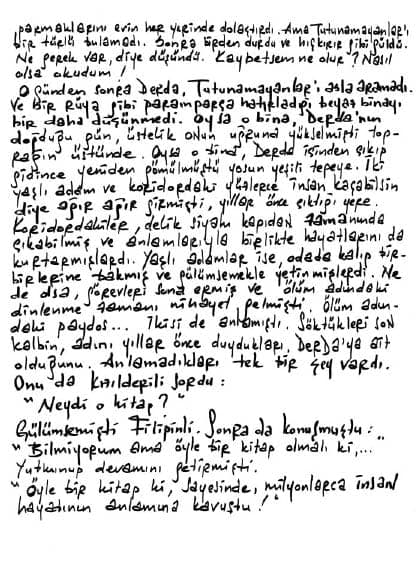 parmaklarını evin her yerinde dolaştırdı. Ama Tutunamayanlar'ı
bir türlü bulamadı. Sonra birden durdu ve hıçkırır gibi güldü.
Ne gerek var, diye düşündü. Kaybetsem ne olur? Nasıl
olsa okudum!
O günden sonra Derda, Tutunamayanlar'ı asla aramadı.
Ve bir rüya gibi paramparça hatırladığı beyaz binayı
bir daha düşünmedi. Oysa o bina, Derda'nın
doğduğu gün, üstelik onun uğruna yükselmişti top-
rağın üstünde. Oysa o bina, Derda içinden çıkıp
gidince yeniden gömülmüştü yosun yeşili tepeye. İki
yaşlı adam ve koridordaki yüzlerce insan kaçabilsin
diye ağır ağır girmişti, yıllar önce çıktığı yere.
Koridordakiler, delik siyah kapıdan zamanında
çıkabilmiş ve anlamlarıyla birlikte hayatlarını da
kurtarmışlardı. Yaşlı adamlar ise, odada kalıp bir-
birlerine bakmış ve gülümsemekle yetinmişlerdi. Ne
de olsa, görevleri sona ermiş ve ölüm adındaki
dinlenme zamanı nihayet gelmişti. Ölüm adın-
daki paydos... İkisi de anlamıştı. Söktükleri son
kalbin, adını yıllar önce duydukları, Derda'ya ait
olduğunu. Anlamadıkları tek bir şey vardı.
Onu da Kızılderili sordu:
"Neydi o kitap?"
Gülümsemişti Filipinli. Sonra da konuşmuştu:
"Bilmiyorum ama öyle bir kitap olmalı ki,...
Yutkunup devamını getirmişti.
"Öyle bir kitap ki, sayesinde, milyonlarca insan
hayatının anlamına kavuştu!"